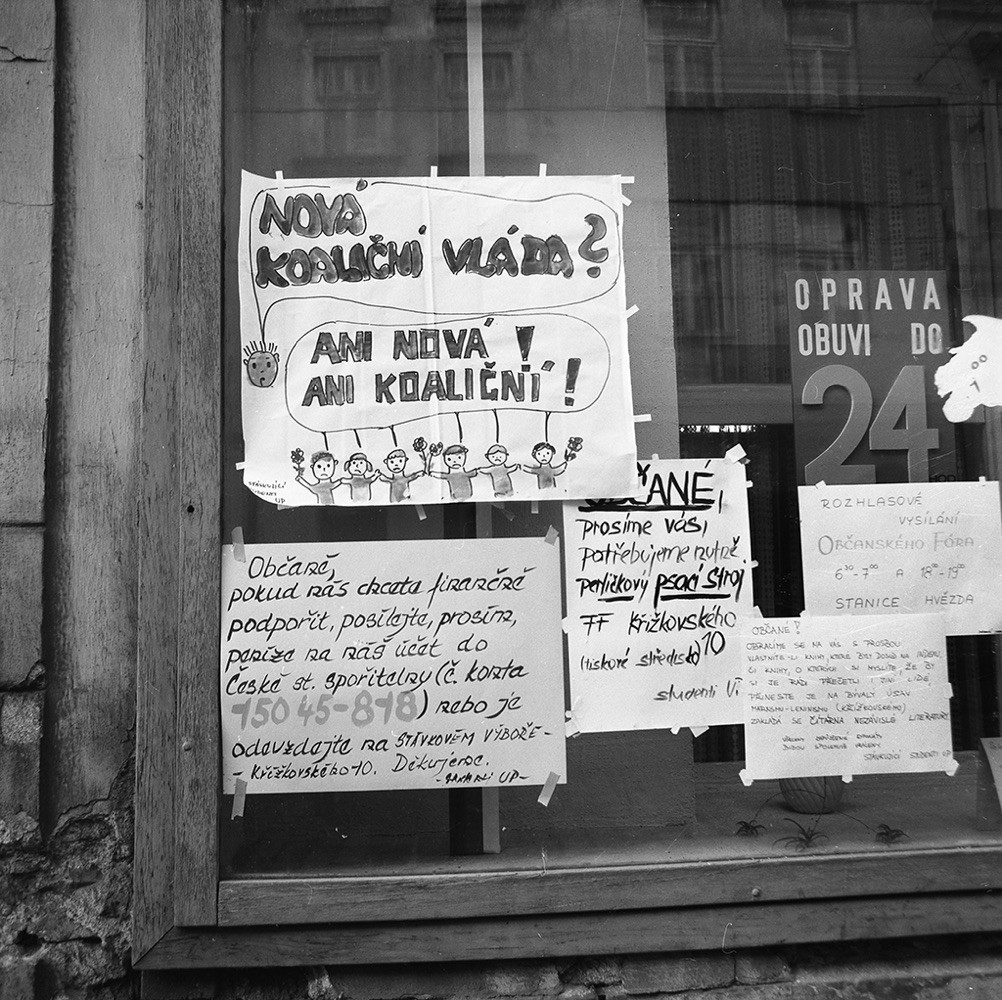 NOVÁ
KOALIČNÍ VLÁDA?
ANI NOVÁ!
ANI KOALIČNÍ!
STÁVKUJÍCÍ
STUDENTI UP
OPRAVA
OBUVI DO
24
OBČANÉ,
prosíme vás,
potřebujeme nutně
perličkový psací stroj
FF Křížkovského
10
(tiskové středisko)
studenti
ROZHLASOVÉ
VYSÍLÁNÍ
OBČANSKÉHO FÓRA
6³⁰-7⁰⁰ A 18³⁰-19⁰⁰
STANICE HVĚZDA
Občané,
pokud nás chcete finančně
podpořit, posílejte, prosím,
peníze na náš účet do
České st. spořitelny (č. konta
150 45-818) nebo je
odevzdejte na STÁVKOVÉM VÝBOŘE -
- Křížkovského 10. Děkujeme.
UP-
OBČANÉ!
OBRACÍME SE NA VÁS S PROSBOU
VLASTNÍTE-LI KNIHY, KTERÉ BYLY DOMA NA INDEXU,
ČI KNIHY, O KTERÝCH SI MYSLÍTE, ŽE BY
SI JE RÁDI PŘEČETLI I JINÍ LIDÉ,
PŘINESTE JE NA BÝVALÝ ÚSTAV
MARXISMU-LENINISMU (KŘÍŽKOVSKÉHO)
ZAKLÁDÁ SE ČÍTÁRNA NEZÁVISLÉ LITERATURY
BUDOU SPOLEHLIVĚ VRÁCENY
STÁVKUJÍCÍ STUDENTI UP